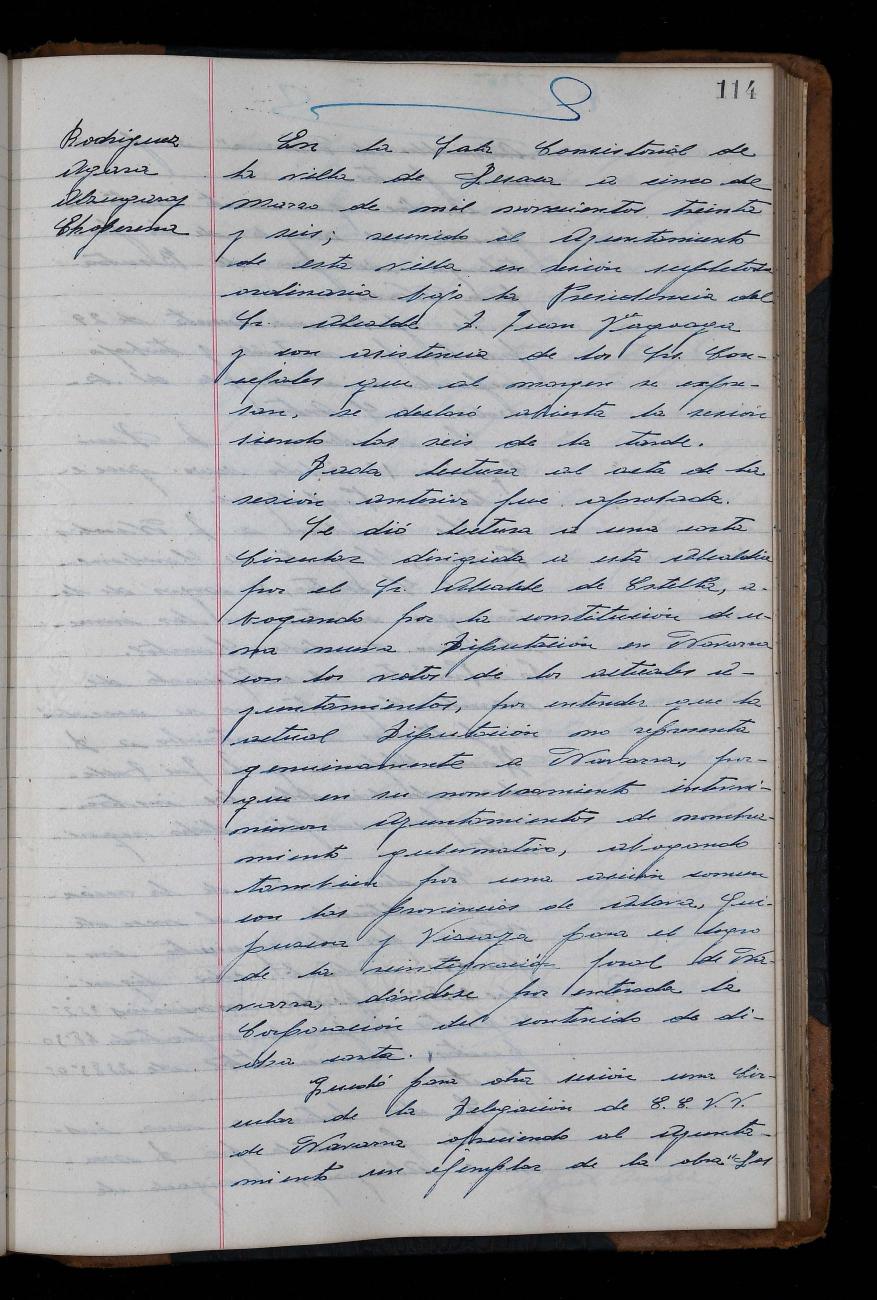 114
Rodriguez
Agara
Alzugaray
En la Sala Consistorial de
la villa de Lesaca a cinco de
Marzo de mil novecientos treinta
y seis; reunido el Ayuntamiento
de esta villa en sesión supletoria
ordinaria bajo la Presidencia del
Sr. Alcalde D. Juan
y con asistencia de los Srs. Con-
cejales que al margen se expre-
san, se declaró abierta la sesión
siendo las seis de la tarde.
Dada lectura al acta de la
sesión anterior fue aprobada.
Se dió lectura a una carta
Circular dirigida a esta Alcaldia
por el Sr. Alcalde de Estella, a-
bogando por la constitución de u-
na nueva Diputación en Navarra
con los votos de los actuales a-
yuntamientos, por entender que la
actual Diputación no representa
genuinamente a Navarra, por-
que en su nombramiento intervi-
nieron Ayuntamientos de nombra-
miento gubernativo, abogando
tambien por una acción comun
con las Provincias de Alava, Gui-
puzcoa y Vizcaya para el logro
de la reintegración foral de Na-
varra, dándose por enterada la
Corporación del contenido de di-
cha carta.
Quedó para otra sesión una Cir-
cular de la Delegación de E.E.V.V.
de Navarra ofreciendo al Ayunta-
miento un ejemplar de la obra "Los